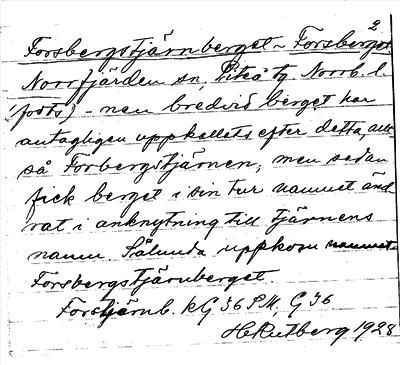 2
Forsbergstjärnberget ~ Forsberget
Norrfjärden sn, Piteå tg. Norrb. l.
(forts) - nen bredvid berget har
antagligen uppkallats efter detta, allt
så Forbergstjärnen; men sedan
fick berget i sin tur namnet änd
rat i anknytning till tjärnens
namn. Sålunda uppkom namnet
Forsbergstjärnberget.
Forstjärnb. kG 36 PM, G 36
H Rutberg 1928